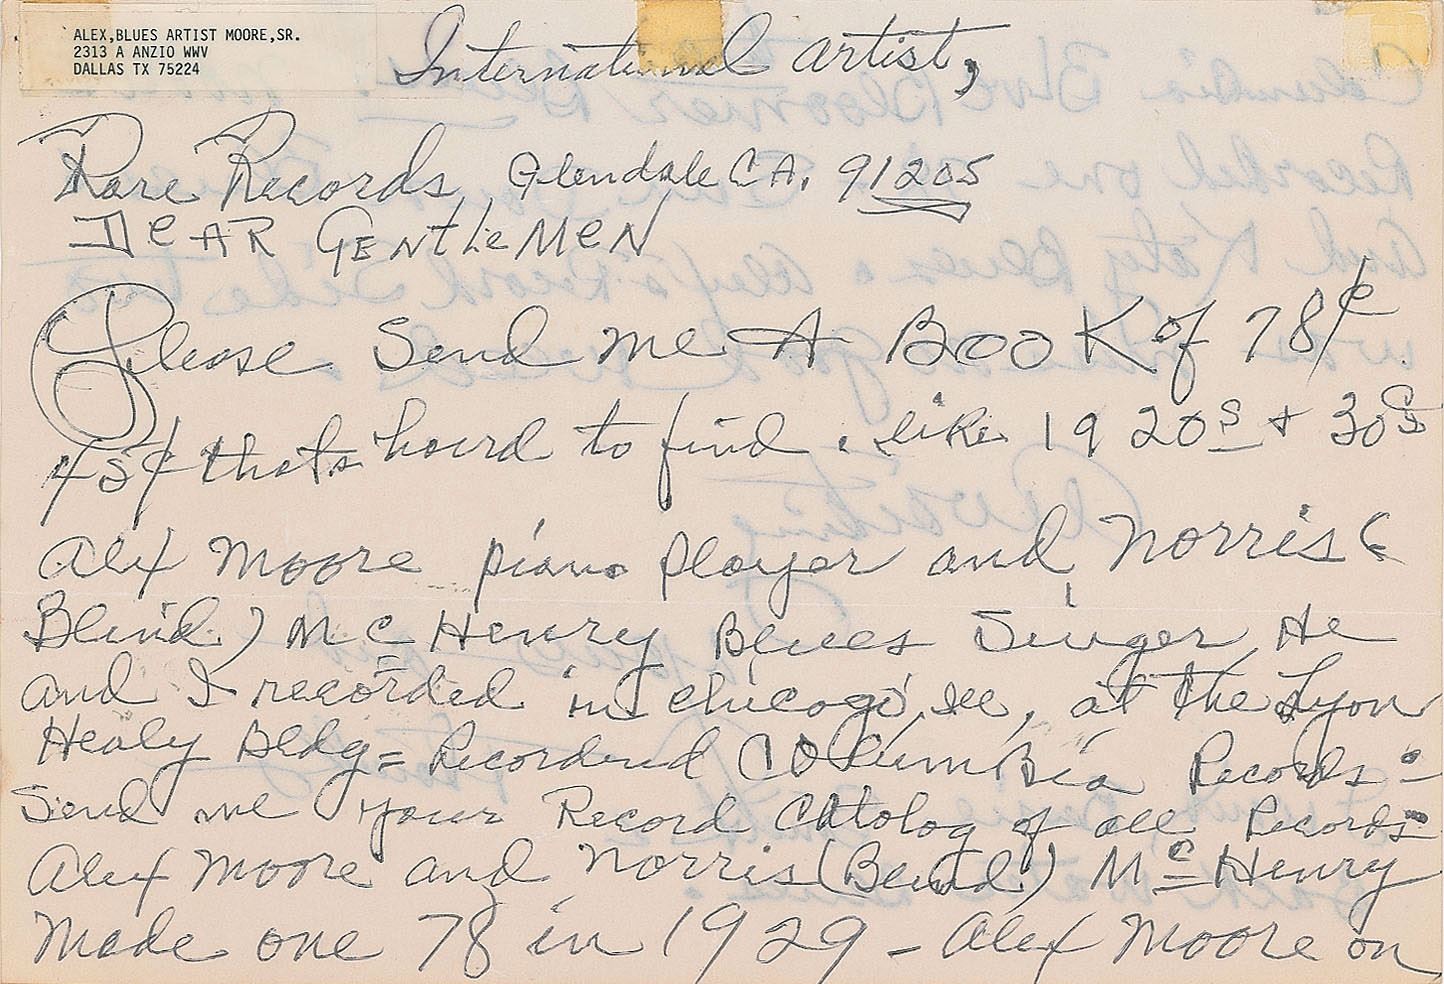 ALEX,BLUES ARTIST MOORE,SR.
2313 A ANZIO WWV
DALLAS TX 75224
International artist,
Rare Records Glendale CA. 91205
DeAR GENtleMeN
Please Send me A BOOK of 78¢
45¢ thats hard to find. like 1920s + 30s
Alex Moore piano player and Norris (
Blind) McHenry Blues Singer He
and I recorded in chicago, Ill, at the Lyon
Healy Bldg = Recordered Columbia Records =
Send me your Record Catolog of all Records =
Alex Moore and Norris (Blind) McHenry
Made one 78 in 1929 - Alex Moore on